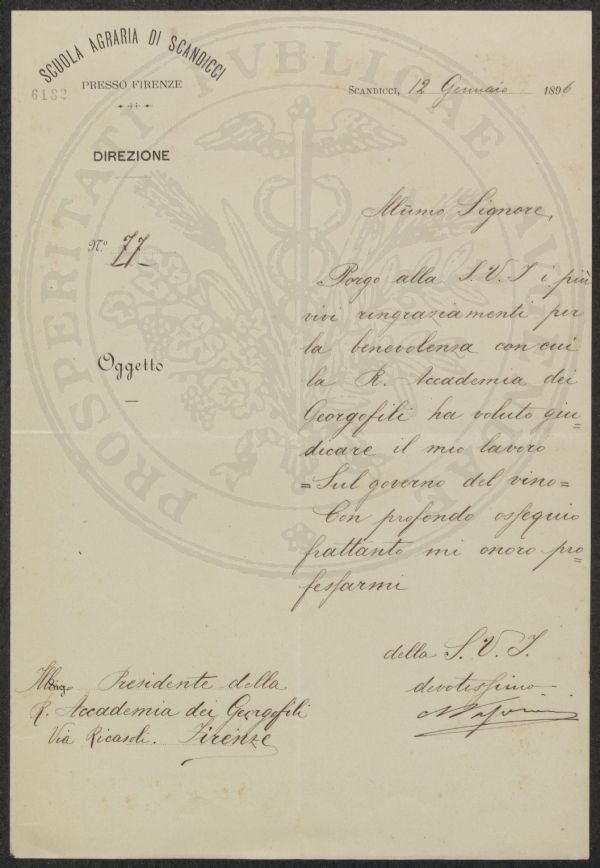 SCUOLA AGRARIA DI SCANDICCI
PRESSO FIRENZE
6182
DIREZIONE
SCANDICCI, 12 Gennaio 1896
Illũmo Signore,
N.º 77
Porgo alla S. V. I i più
vivi ringraziamenti per
la benevolenza con cui
Oggetto
la R. Accademia dei
Georgofili ha voluto giu=
dicare il mio lavoro
=Sul governo del vino=
Con profondo ossequio
frattanto mi onoro pro=
fessarmi
della S. V. I.
devotissimo
Presidente della
R. Accademia dei Georgofili
Via Ricasoli. Firenze
PROSPERITATI PVBLICAE